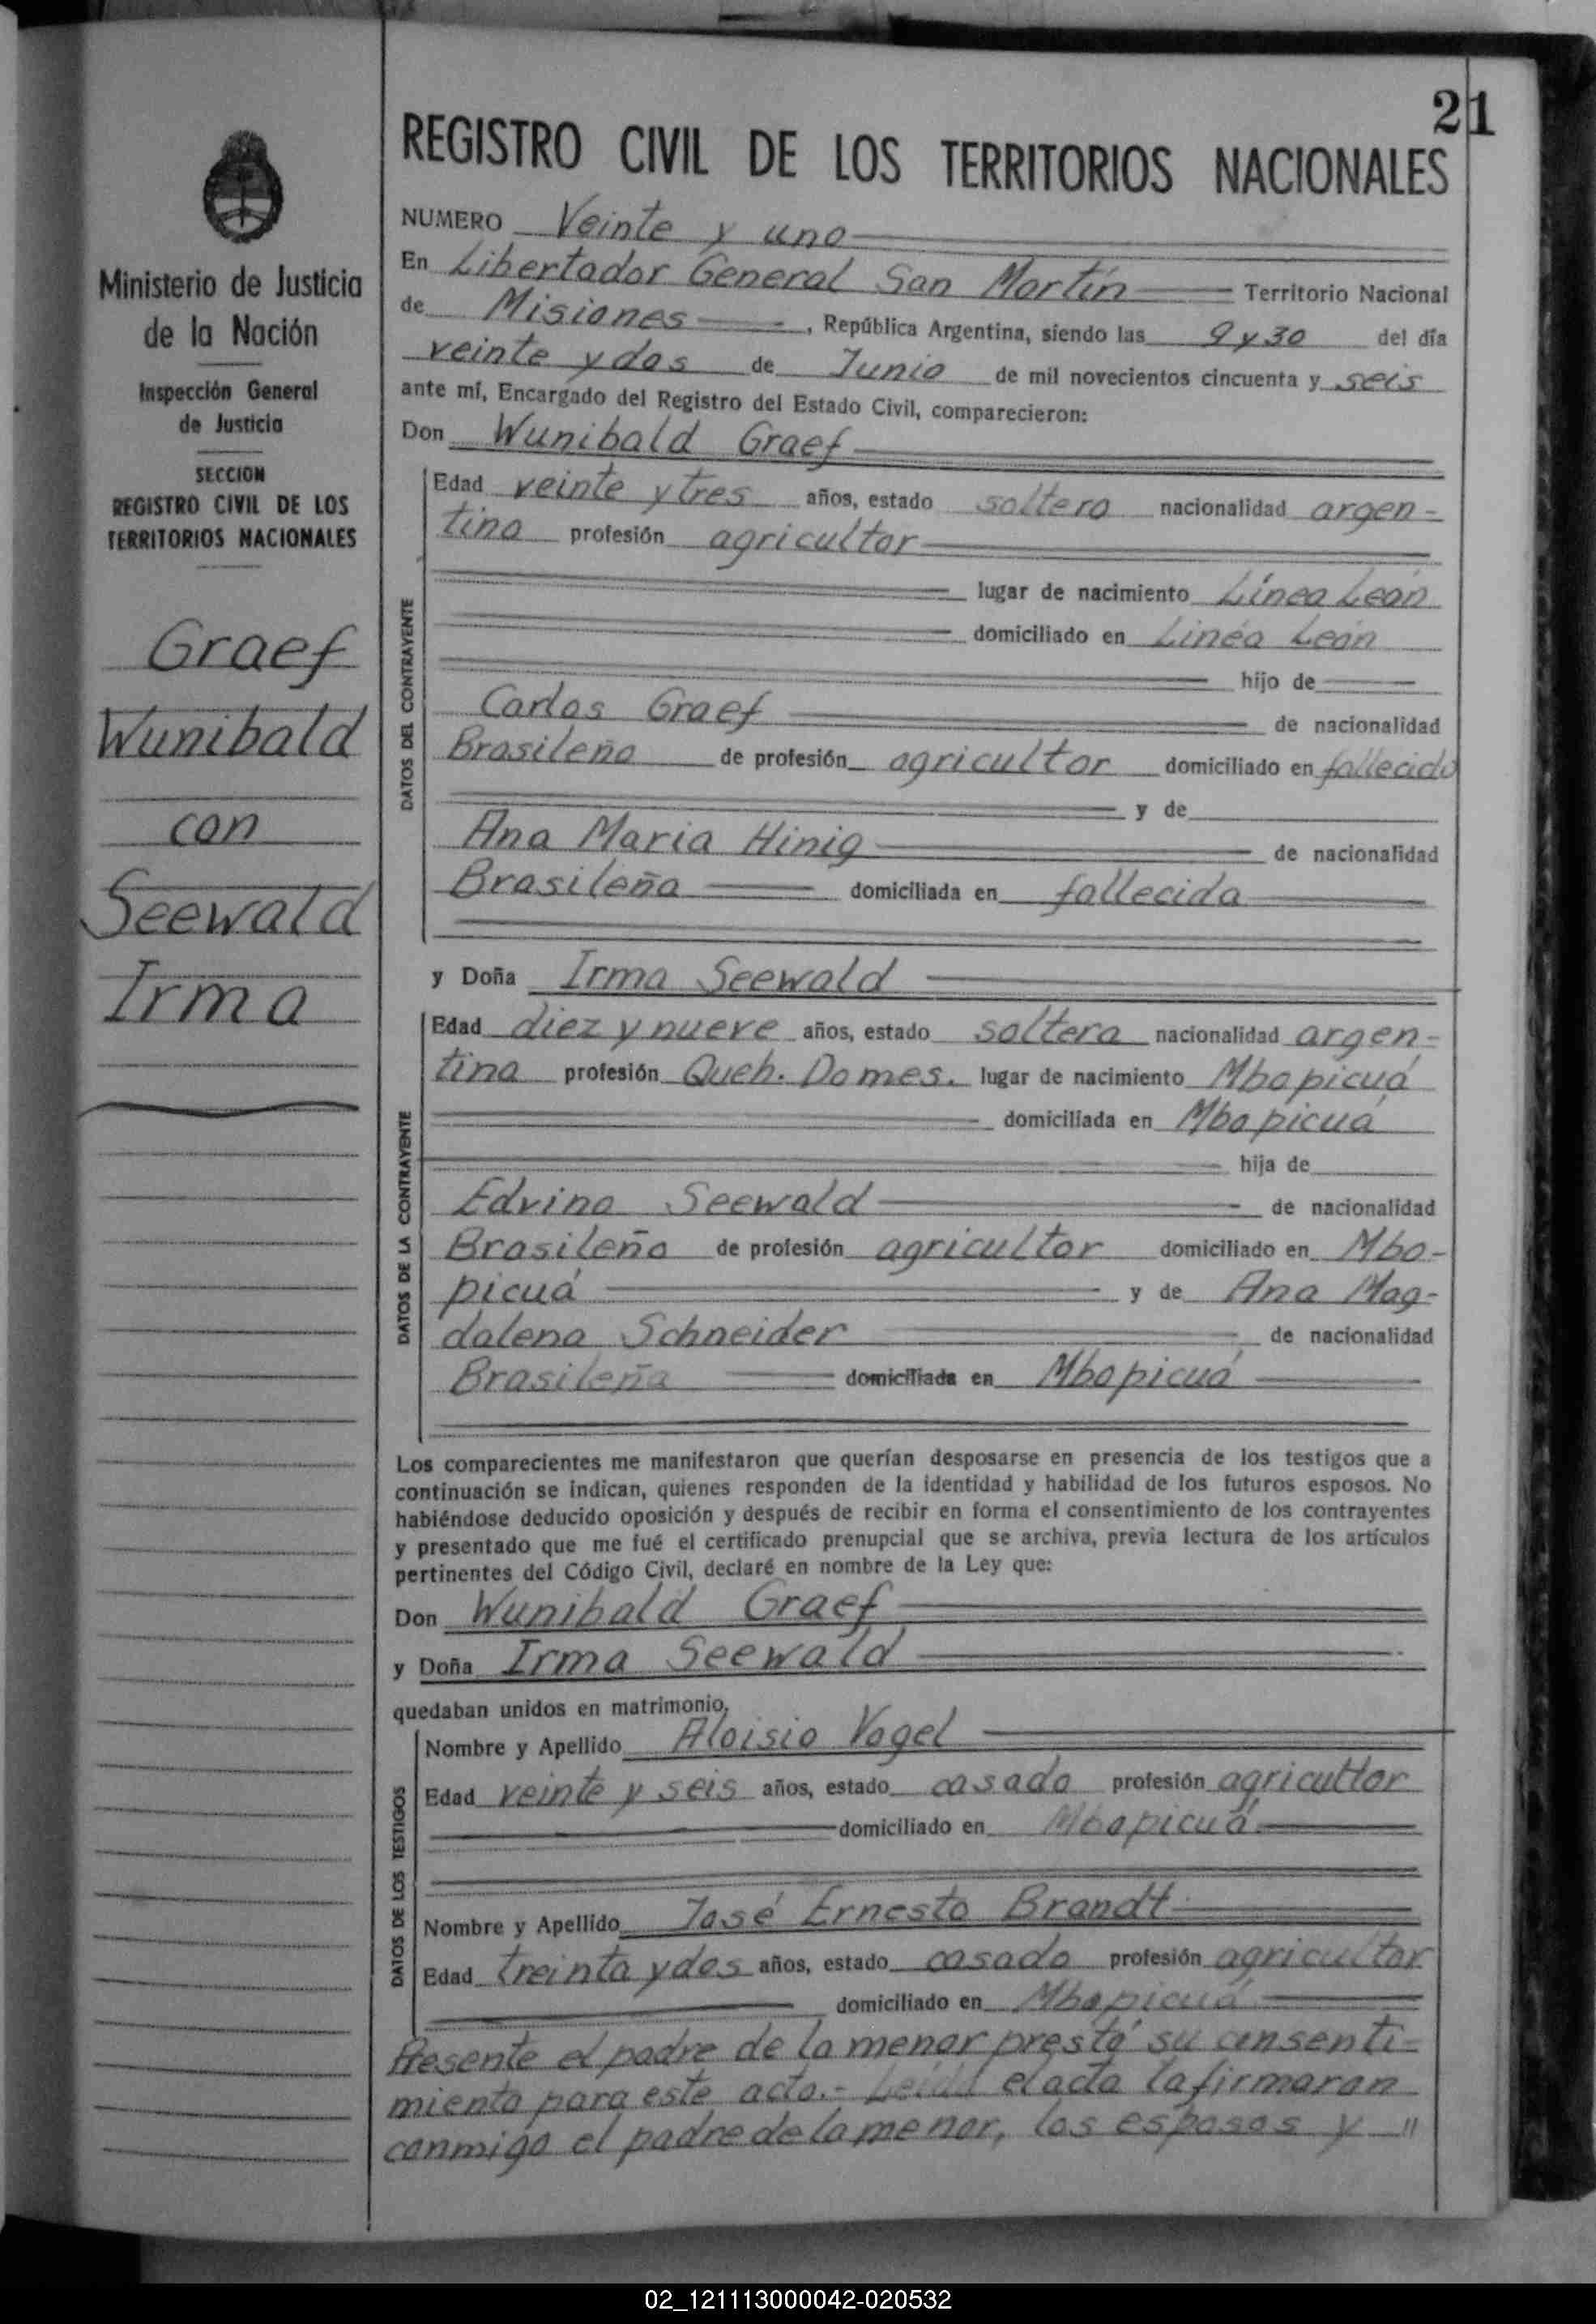 21
REGISTRO CIVIL DE LOS TERRITORIOS NACIONALES
Ministerio de Justicia
de la Nación
Inspección General
de Justicia
SECCION
REGISTRO CIVIL DE LOS
TERRITORIOS NACIONALES
Graef
Wunibald
con
Seewald
Irma
NUMERO Veinte y uno
En Libertador General San Martín Territorio Nacional
de Misiones, República Argentina, siendo las 9 y 30 del día
veinte y dos de Junio de mil novecientos cincuenta y seis
ante mí, Encargado del Registro del Estado Civil, comparecieron:
Don Wunibald Graef
DATOS DEL CONTRAYENTE
Edad veinte y tres años, estado soltero nacionalidad argen-
tina profesión agricultor
lugar de nacimiento Línea León
domiciliado en Linéa León
hijo de
Carlos Graef de nacionalidad
Brasileño de profesión agricultor domiciliado en fallecido
y de
Ana Maria Hinig de nacionalidad
Brasileña domiciliada en fallecida
y Doña Irma Seewald
DATOS DE LA CONTRAYENTE
Edad diez y nueve años, estado soltera nacionalidad argen-
tina profesión Queh. Domes. lugar de nacimiento Mbopicuá
domiciliada en Mbopicuá
hija de
Edvino Seewald de nacionalidad
Brasileño de profesión agricultor domiciliado en Mbo-
picuá y de Ana Mag-
dalena Schneider de nacionalidad
Brasileña domiciliada en Mbopicuá
Los comparecientes me manifestaron que querían desposarse en presencia de los testigos que a
continuación se indican, quienes responden de la identidad y habilidad de los futuros esposos. No
habiéndose deducido oposición y después de recibir en forma el consentimiento de los contrayentes
y presentado que me fué el certificado prenupcial que se archiva, previa lectura de los artículos
pertinentes del Código Civil, declaré en nombre de la Ley que:
Don Wunibald Graef
y Doña Irma Seewald
quedaban unidos en matrimonio.
DATOS DE LOS TESTIGOS
Nombre y Apellido Aloisio Vogel
Edad veinte y seis años, estado casado profesión agricultor
domiciliado en Mbopicuá
Nombre y Apellido José Ernesto Brandt
Edad treinta y dos años, estado casado profesión agricultor
domiciliado en Mbopicuá
Presente el padre de la menor prestó su consenti-
miento para este acto.- Leida el acta la firmaron
conmigo el padre de la menor, los esposos y "
02_121113000042-020532